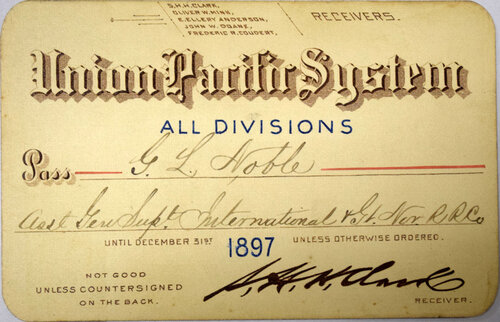 S.H.H. CLARK,
OLIVER W. MINK,
E. ELLERY ANDERSON,
JOHN W. DOANE,
FREDERIC R. COUDERT,
RECEIVERS.
Union Pacific System
ALL DIVISIONS
Pass G. L. Noble
Asst Genl Supt. International & Gt. Nor. R.R.Co
UNTIL DECEMBER 31ST 1897 UNLESS OTHERWISE ORDERED.
NOT GOOD
UNLESS COUNTERSIGNED
ON THE BACK.
S. H. H. Clark
RECEIVER.